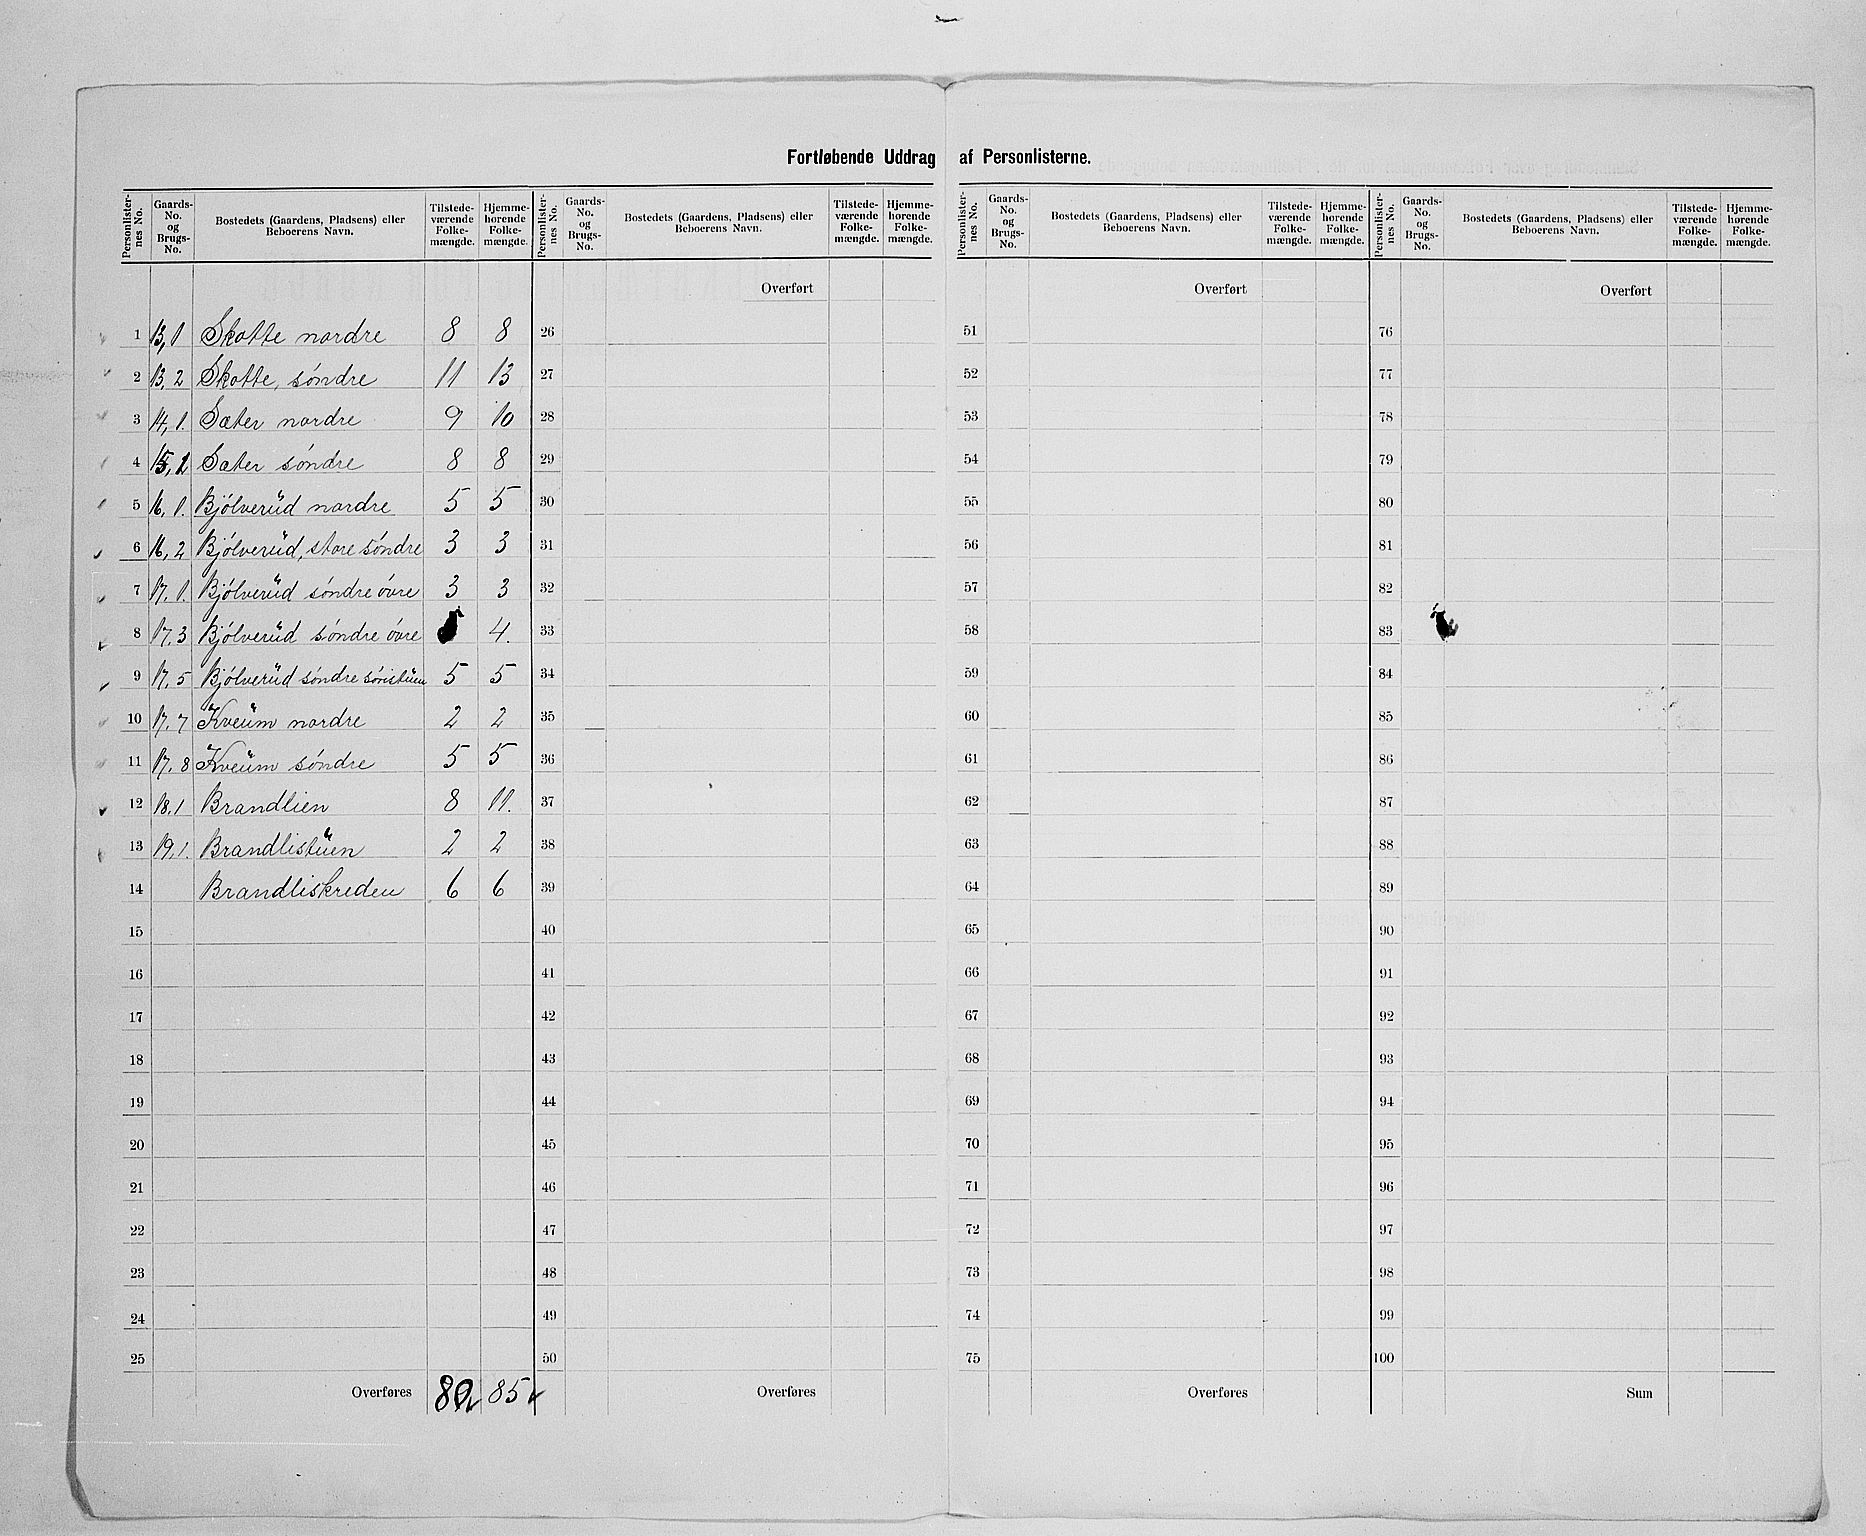 Fortløbende Uddrag af Personlisterne.
Personlister-nes No. | Gaards-No. og Brugs-No. | Bostedets (Gaardens, Pladsens) eller Beboerens Navn. | Tilstede-værende Folke-mængde. | Hjemme-hørende Folke-mængde.
1 | 13,1 | Skotte nordre | 8 | 8
2 | 13,2 | Skotte, söndre | 11 | 13
3 | 14,1. | Sæter nordre | 9 | 10
4 | 15,1 | Sæter söndre | 8 | 8
5 | 16,1. | Bjölverud nordre | 5 | 5
6 | 16,2 | Bjölverud, store söndre | 3 | 3
7 | 17.1. | Bjölverud söndre övre | 3 | 3
8 | 17.3 | Bjölverud söndre övre | | 4.
9 | 17.5 | Bjölverud söndre söristuen | 5 | 5
10 | 17.7 | Kveum nordre | 2 | 2
11 | 17.8 | Kveum söndre | 5 | 5
12 | 18.1 | Brandlien | 8 | 11.
13 | 19.1. | Brandlistuen | 2 | 2
14 | | Brandliskreden | 6 | 6
15
16
17
18
19
20
21
22
23
24
25
Overføres | 80 | 85
Personlister-nes No. | Gaards-No. og Brugs-No. | Bostedets (Gaardens, Pladsens) eller Beboerens Navn. | Tilstede-værende Folke-mængde. | Hjemme-hørende Folke-mængde.
Overført
26
27
28
29
30
31
32
33
34
35
36
37
38
39
40
41
42
43
44
45
46
47
48
49
50
Overføres
Personlister-nes No. | Gaards-No. og Brugs-No. | Bostedets (Gaardens, Pladsens) eller Beboerens Navn. | Tilstede-værende Folke-mængde. | Hjemme-hørende Folke-mængde.
Overført
51
52
53
54
55
56
57
58
59
60
61
62
63
64
65
66
67
68
69
70
71
72
73
74
75
Overføres
Personlister-nes No. | Gaards-No. og Brugs-No. | Bostedets (Gaardens, Pladsens) eller Beboerens Navn. | Tilstede-værende Folke-mængde. | Hjemme-hørende Folke-mængde.
Overført
76
77
78
79
80
81
82
83
84
85
86
87
88
89
90
91
92
93
94
95
96
97
98
99
100
Sum